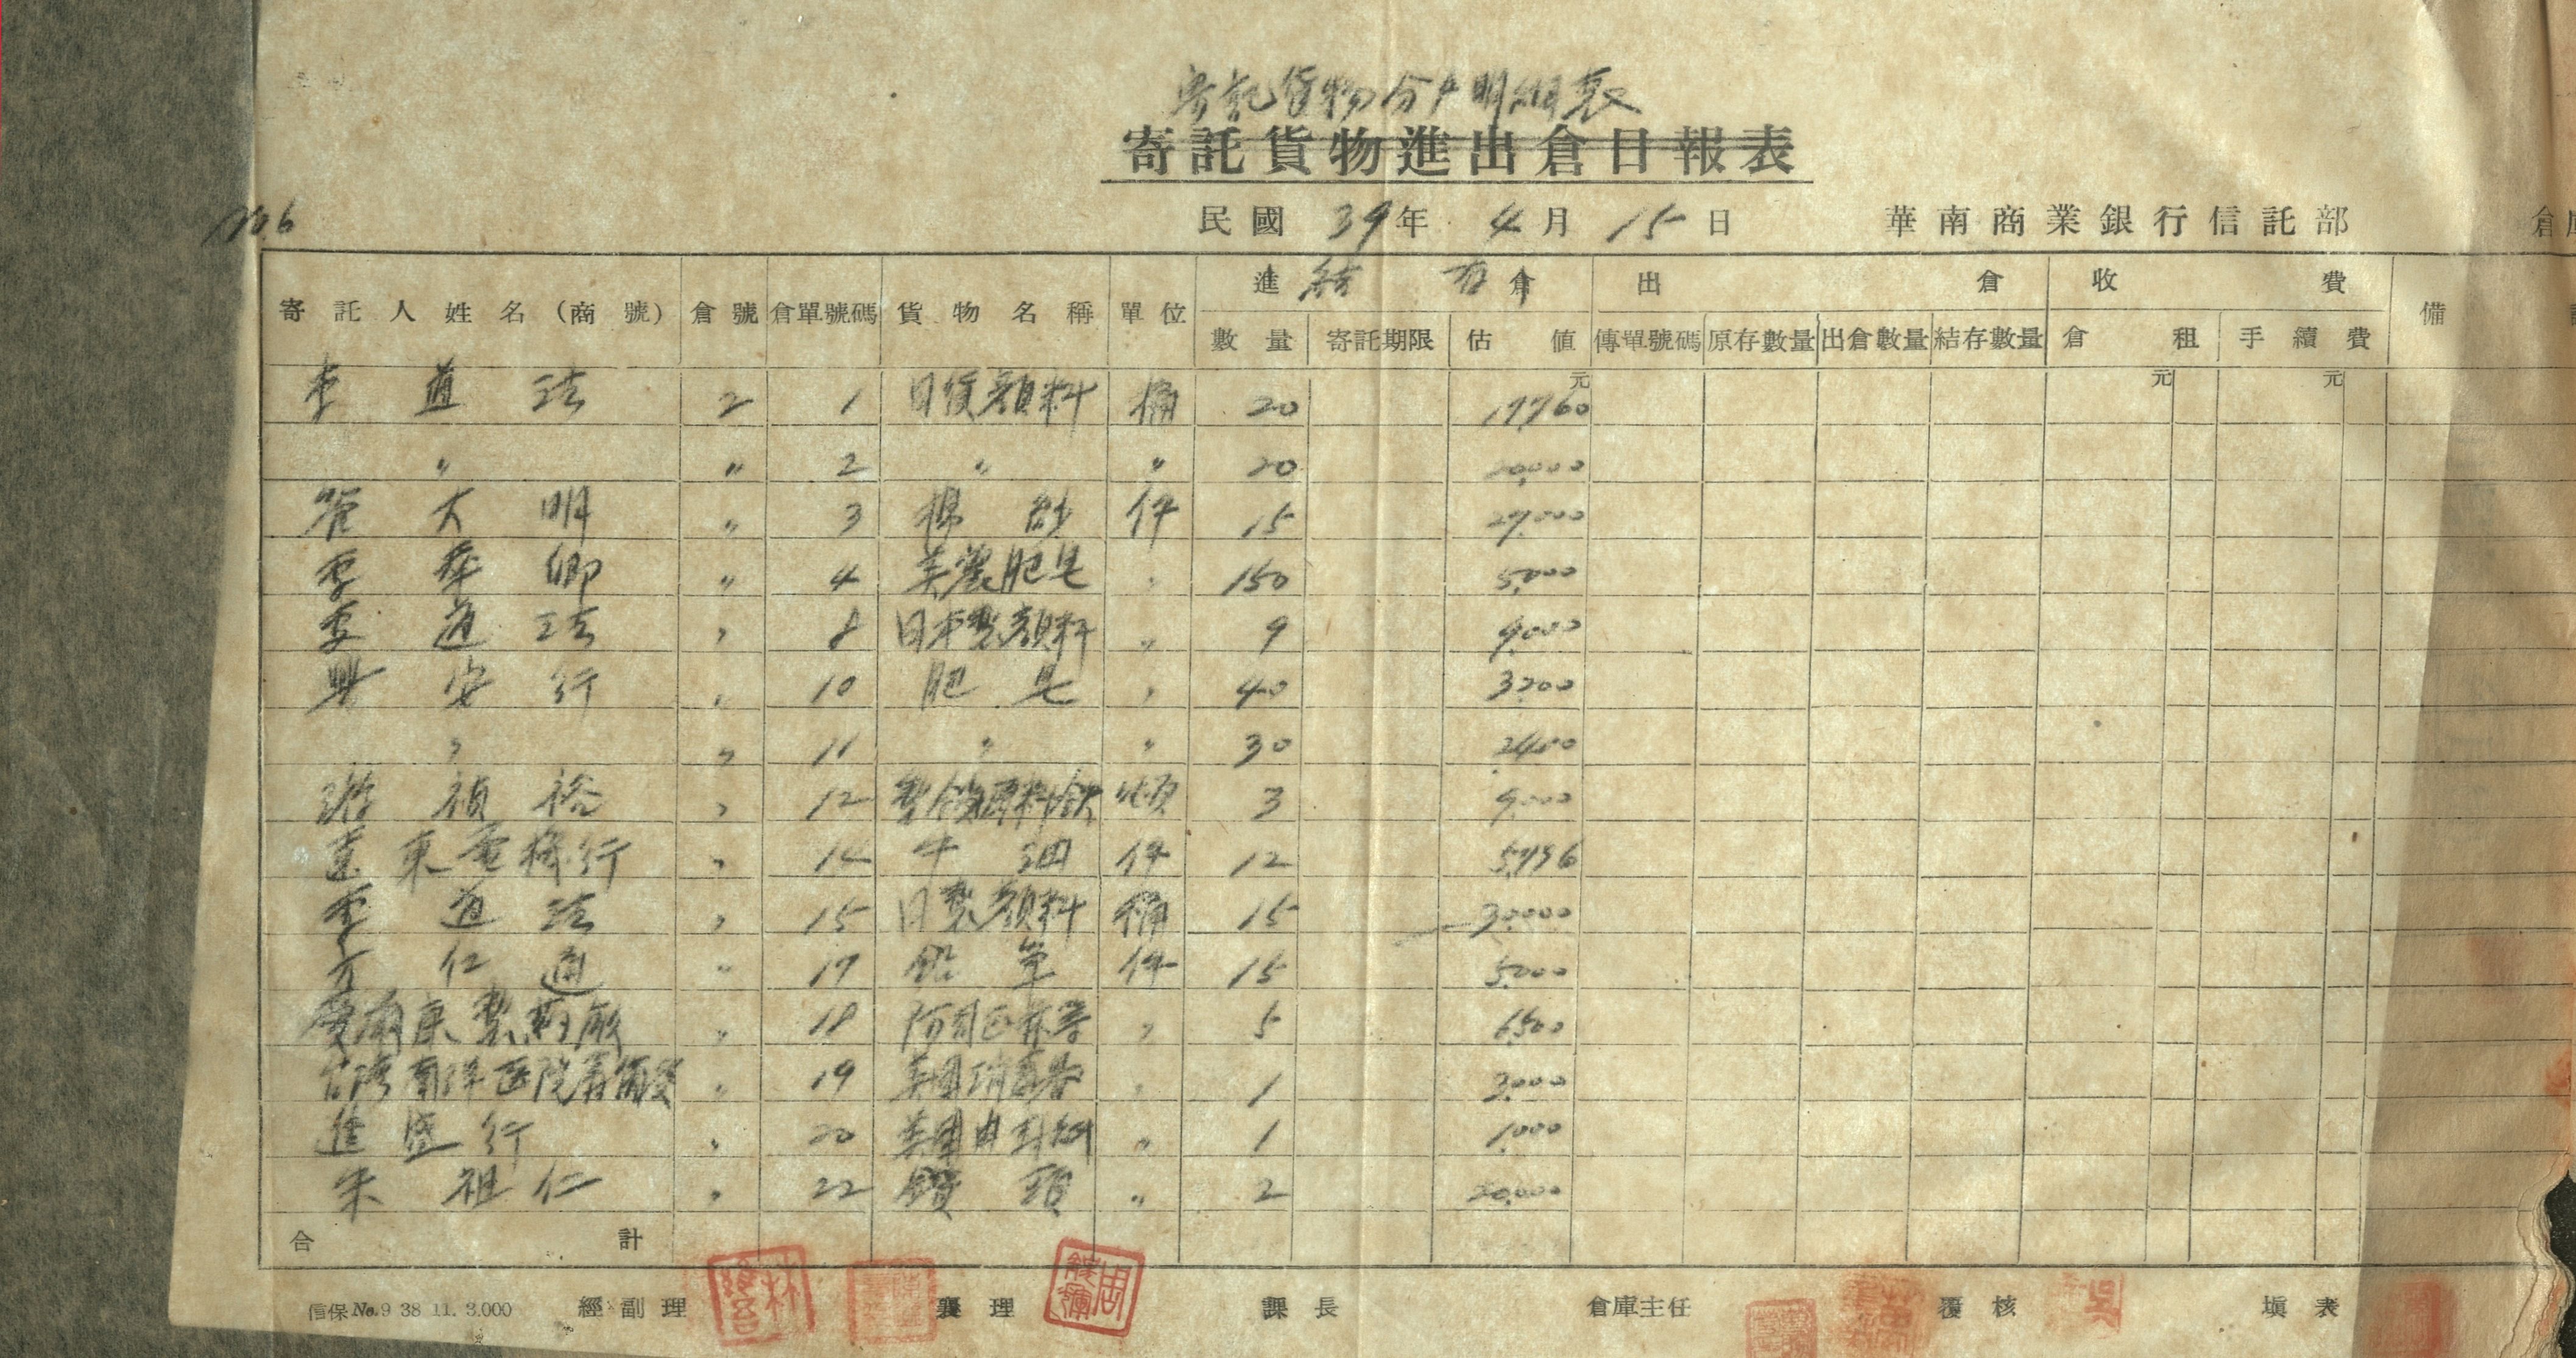 寄託貨物分戶明細表
寄託貨物進出倉日報表
No.6
民國 39年 4月 15日 華南商業銀行信託部 倉
寄託人姓名(商號) 倉號 倉單號碼 貨物名稱 單位 進 結 存 倉 出 倉 收 費 備
數量 寄託期限 估值 傳單號碼 原存數量 出倉數量 結存數量 倉租 手續費
元 元 元
李道法 2 1 日貨顏料 桶 20 17,760
〃 〃 2 〃 〃 20 20,000
大明 〃 3 棉紗 件 15 27,000
李華卿 〃 4 美濃肥皂 〃 150 5,000
李道法 〃 8 日本製顏料 〃 9 9,000
興安行 〃 10 肥皂 〃 40 3,200
〃 〃 11 〃 〃 30 2,400
游禎裕 〃 12 製飯原料 3 9,000
遠東電機行 〃 14 牛油 件 12
李道法 〃 15 日製顏料 桶 15 30,000
方仁通 〃 17 鉛筆 件 15 5,000
康製葯廠 〃 18 阿司匹 〃 5 6,500
台灣南洋医院 〃 19 美國消 〃 1 3,000
進盛行 〃 20 美國 〃 1 1,000
朱祖仁 〃 22 鑽頭 〃 2 20,000
合計
信保No.9 38 11. 3.000 經副理 襄理 課長 倉庫主任 覆核 填表
林
周
吳